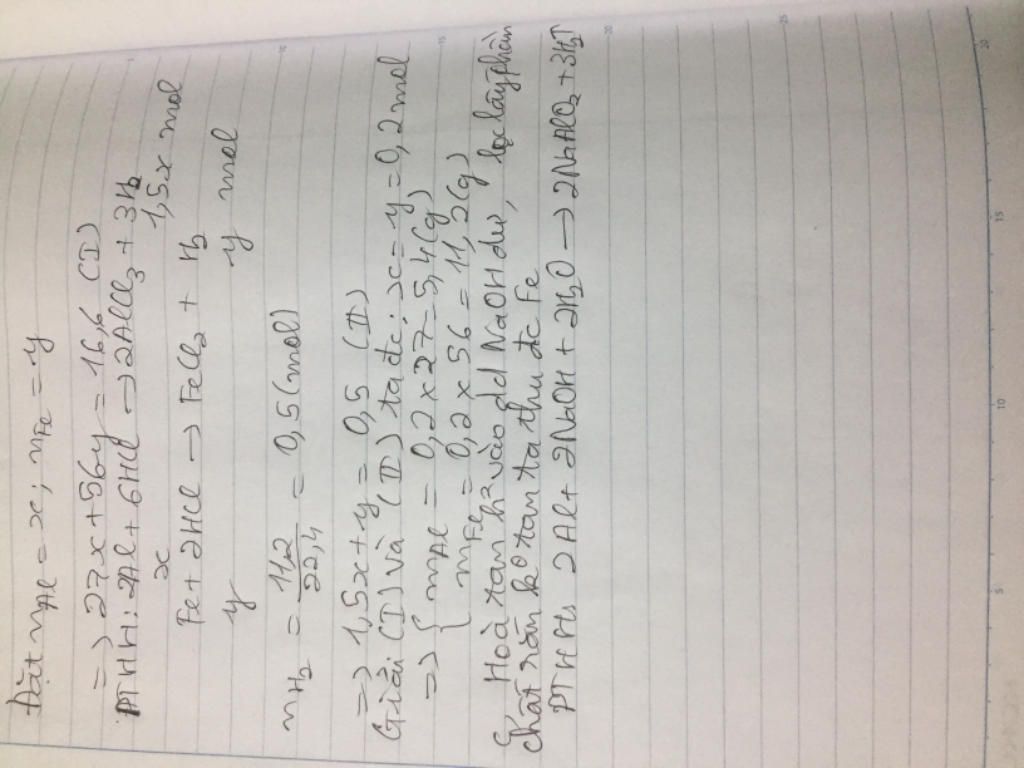 Đặt nAl = x ; nFe = y
=> 27x + 56y = 16,6 (I)
PTHH: 2Al + 6HCl → 2AlCl3 + 3H2
x 1,5x mol
Fe + 2HCl → FeCl2 + H2
y y mol
nH2 = 11,2/22,4 = 0,5 (mol)
=> 1,5x + y = 0,5 (II)
Giải (I) và (II) ta đc : x = y = 0,2 mol
=> { mAl = 0,2 x 27 = 5,4 (g)
mFe = 0,2 x 56 = 11,2 (g)
Hoà tan h² vào dd NaOH dư, lọc lấy phần
chất rắn ko tan ta thu đc Fe
PTHH 2Al + 2NaOH + 2H2O → 2NaAlO2 + 3H2↑
5
10
15
20
5
10
15
20
25